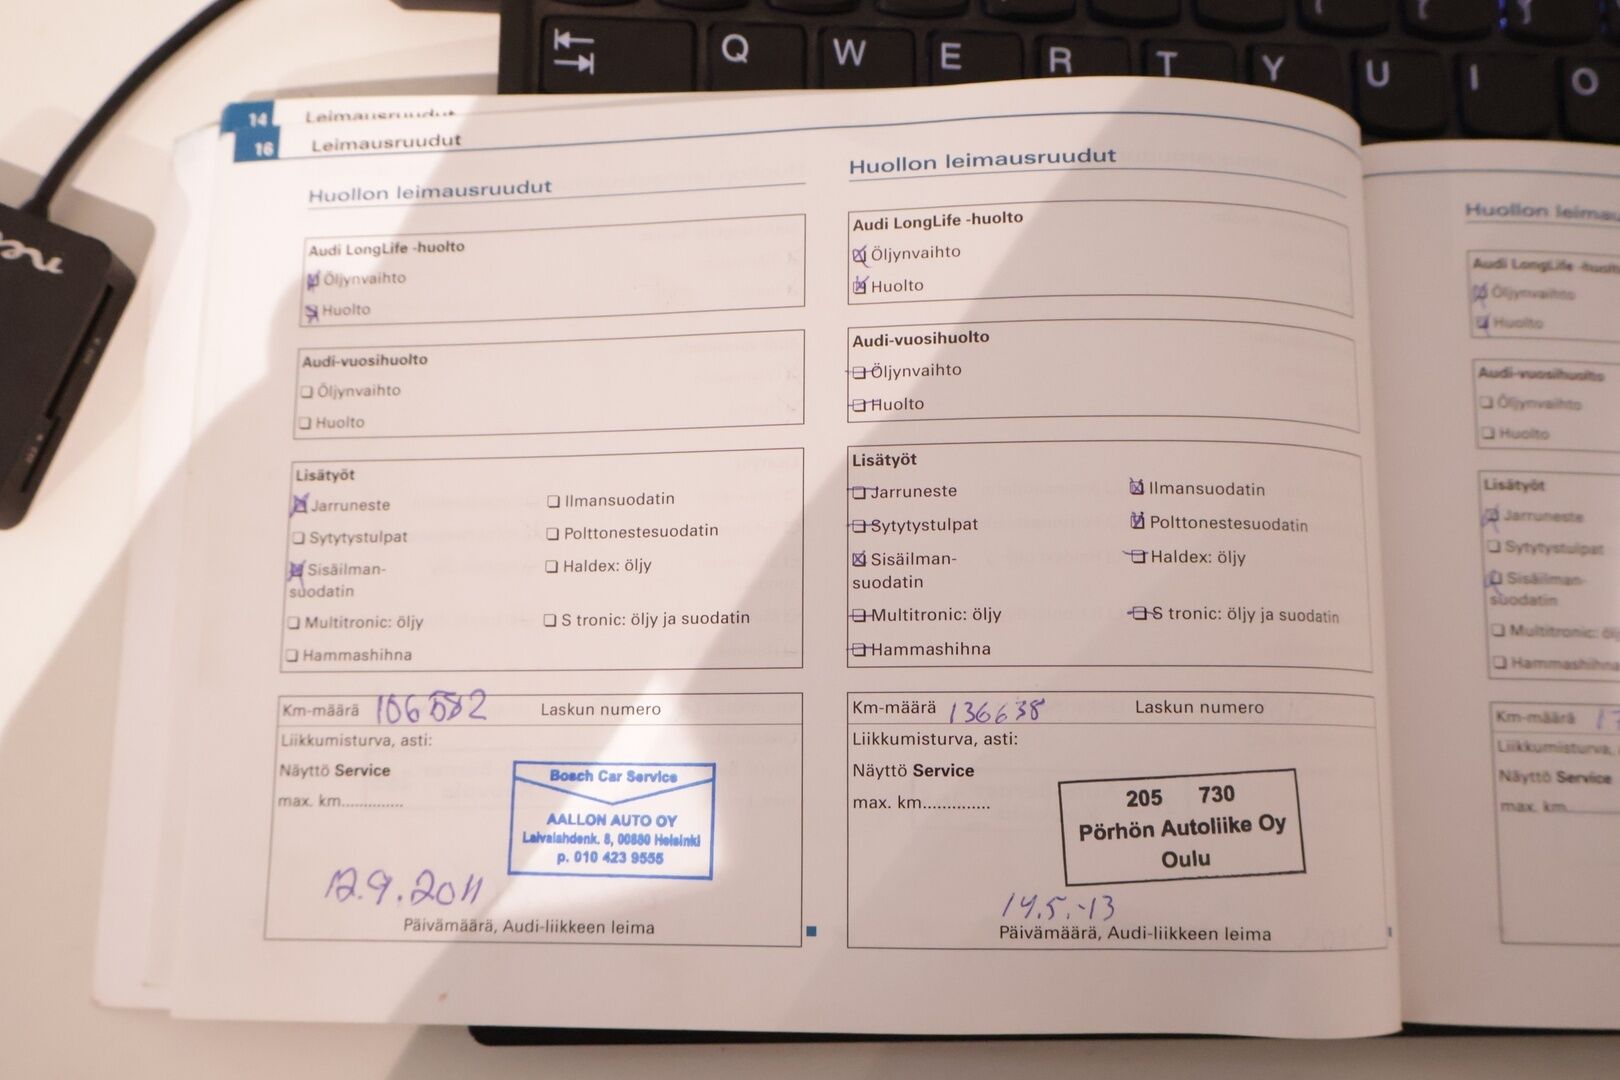 Q W E R T Y U I O
14 Leimausruudut
16 Leimausruudut
Huollon leimausruudut
Audi LongLife -huolto
Öljynvaihto
Huolto
Audi-vuosihuolto
Öljynvaihto
Huolto
Lisätyöt
Jarruneste
Ilmansuodatin
Sytytystulpat
Polttonestesuodatin
Sisäilman-
suodatin
Haldex: öljy
Multitronic: öljy
S tronic: öljy ja suodatin
Hammashihna
Km-määrä
Laskun numero
Liikkumisturva, asti:
Näyttö Service
max. km..............
Bosch Car Service
AALLON AUTO OY
Laivalahdenk. 8, 00880 Helsinki
p. 010 423 9555
12.9.2011
Päivämäärä, Audi-liikkeen leima
Huollon leimausruudut
Audi LongLife -huolto
Öljynvaihto
Huolto
Audi-vuosihuolto
Öljynvaihto
Huolto
Lisätyöt
Jarruneste
Ilmansuodatin
Sytytystulpat
Polttonestesuodatin
Sisäilman-
suodatin
Haldex: öljy
Multitronic: öljy
S tronic: öljy ja suodatin
Hammashihna
Km-määrä 136638
Laskun numero
Liikkumisturva, asti:
Näyttö Service
max. km...............
205 730
Pörhön Autoliike Oy
Oulu
14.5.-13
Päivämäärä, Audi-liikkeen leima
Huollon
Audi LongLife
Öljynvaihto
Huolto
Audi-vuosihuolto
Öljynvaihto
Huolto
Lisätyöt
Jarruneste
Sytytystulpat
Sisäilman-
suodatin
Multitronic:
Hammashihna
Km-määrä
Liikkumisturva,
Näyttö Service
max. km